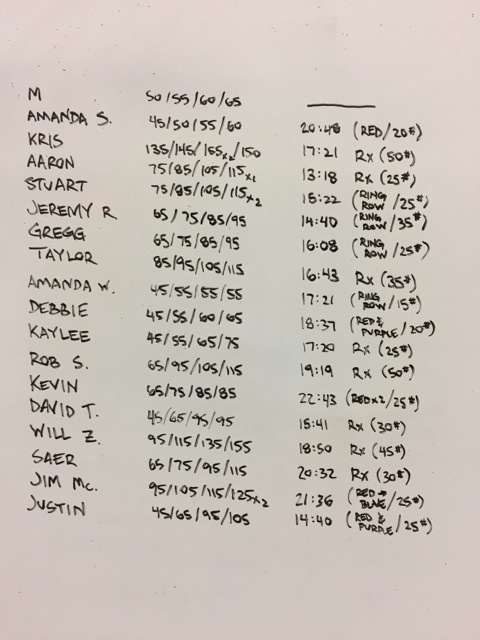 M 50/55/60/65
AMANDA S. 45/50/55/60 20:48 (RED/20#)
KRIS 135/145/155x2/150 17:21 Rx (50#)
AARON 75/85/105/115x1 13:18 Rx (25#)
STUART 75/85/105/115x2 15:22 (RING ROW/25#)
JEREMY R 65/75/85/95 14:40 (RING ROW/35#)
GREGG 65/75/85/95 16:08 (RING ROW/25#)
TAYLOR 85/95/105/115 16:43 Rx (35#)
AMANDA W. 45/55/55/55 17:21 (RING ROW/15#)
DEBBIE 45/55/60/65 18:37 (RED & PURPLE/20#)
KAYLEE 45/55/65/75 17:20 Rx (25#)
ROB S. 65/95/105/115 19:19 Rx (50#)
KEVIN 65/75/85/85 22:43 (REDx2/25#)
DAVID T. 45/65/95/95 15:41 Rx (30#)
WILL Z. 95/115/135/155 18:50 Rx (45#)
SAER 65/75/95/115 20:32 Rx (30#)
JIM MC. 95/105/115/125x2 21:36 (RED + BLUE/25#)
JUSTIN 45/65/95/105 14:40 (RED & PURPLE/25#)